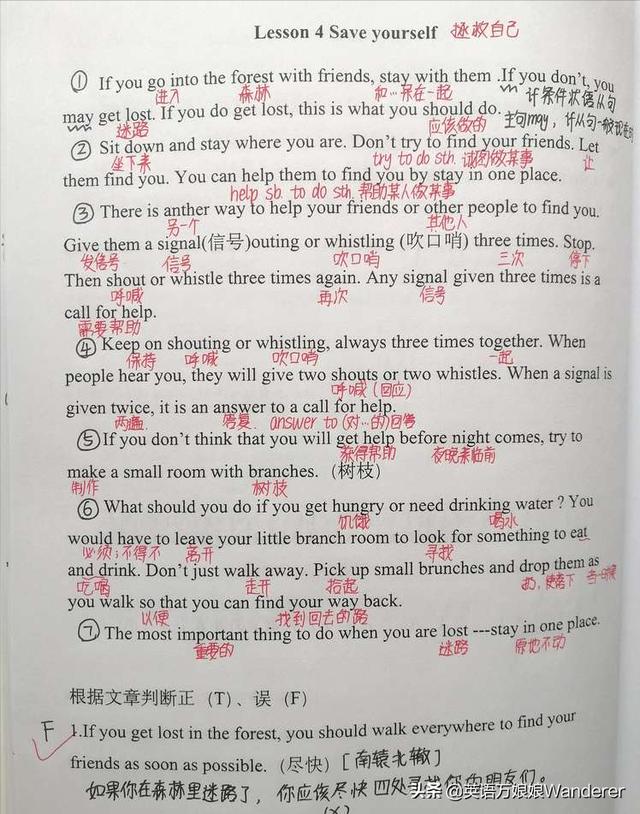 Lesson 4 Save yourself 拯救自己
① If you go into the forest with friends, stay with them .If you don't, you
进入 森林 和…呆在一起 if条件状语从句
may get lost. If you do get lost, this is what you should do.
迷路 应该做的 主句may, if从句一般现在时
② Sit down and stay where you are. Don't try to find your friends. Let
坐下来 try to do sth. 试图做某事 让
them find you. You can help them to find you by stay in one place.
help sb. to do sth. 帮助某人做某事
③ There is anther way to help your friends or other people to find you.
另一个 其他人
Give them a signal(信号)outing or whistling (吹口哨) three times. Stop.
发信号 信号 吹口哨 三次 停下
Then shout or whistle three times again. Any signal given three times is a
呼喊 再次 信号
call for help.
需要帮助
④ Keep on shouting or whistling, always three times together. When
保持 呼喊 吹口哨 一起
people hear you, they will give two shouts or two whistles. When a signal is
呼喊(回应)
given twice, it is an answer to a call for help.
两遍. 答复. answer to (对…的)回答
⑤ If you don't think that you will get help before night comes, try to
获得帮助 夜晚来临前
make a small room with branches. (树枝)
制作 树枝
⑥ What should you do if you get hungry or need drinking water ? You
饥饿 喝水
would have to leave your little branch room to look for something to eat
必须;不得不 离开 寻找
and drink. Don't just walk away. Pick up small brunches and drop them as
吃喝 走开 拾起 扔,使落下 当…时候
you walk so that you can find your way back.
以便 找到回去的路
⑦ The most important thing to do when you are lost ---stay in one place.
重要的 迷路 原地不动
根据文章判断正 (T) 、误 (F)
F 1.If you get lost in the forest, you should walk everywhere to find your
friends as soon as possible. (尽快) [南辕北辙]
如果你在森林里迷路了, 你应该尽快四处寻找你的朋友们。
头条 @英语万娘娘Wanderer
(×)